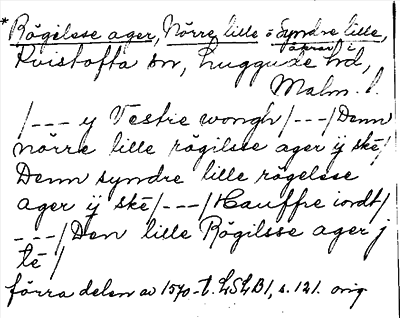 * Rögilsse ager, Nörre lille o Syndre lille,
åkrar i
Kvistofta sn, Luggude hd,
Malm. l.
/--- y Vestre wongh/---/Denn
nörre lille rögilsse ager ij ske/
Denn syndre lille rögelsse
ager ij ske/---/Hauffre iordt/
---/Den lille Rögilsse ager j
te/
förra delen av 1570-t. LSLB1, s. 121. orig